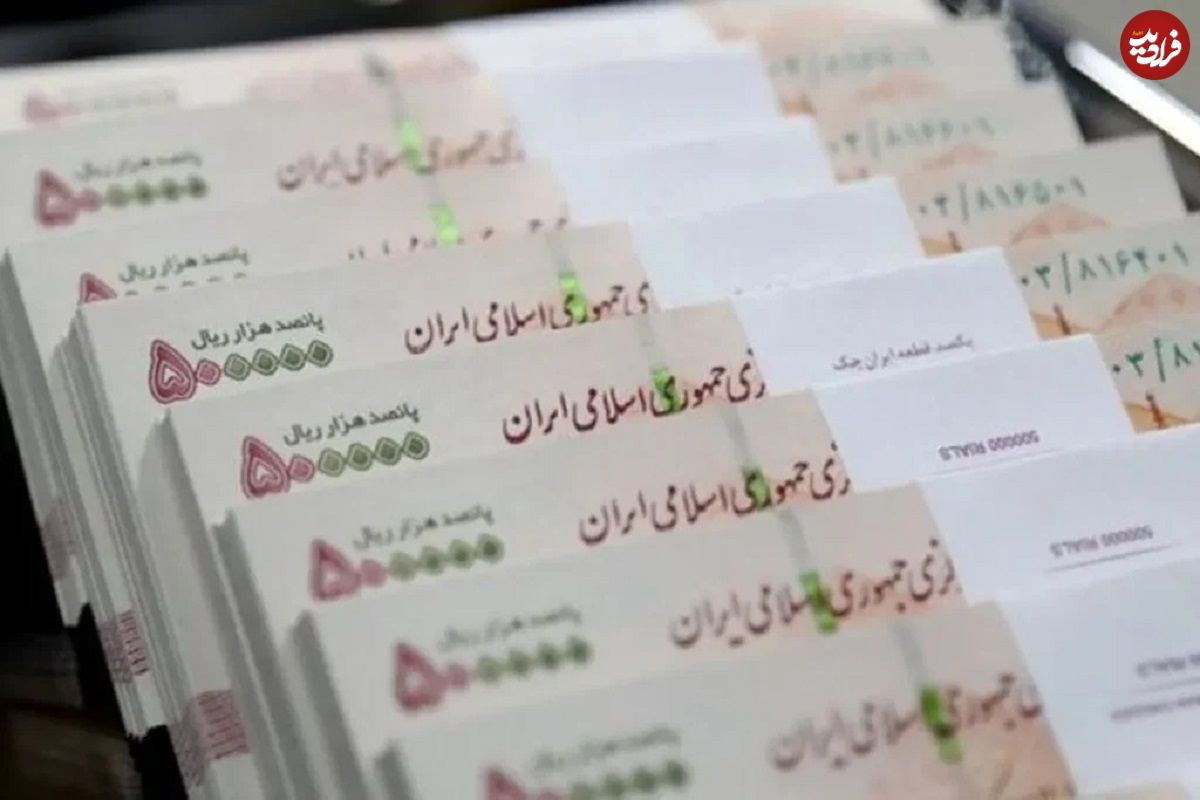 فرادید
پانصد هزار ریال
۵۰۰۰۰۰
جمهوری اسلامی ایران
پانصد هزار ریال
۸۱۶۶۰۱
پانصد هزار ریال
۵۰۰۰۰۰
جمهوری اسلامی ایران
۸۱۶۵۰۱
پانصد هزار ریال
۵۰۰۰۰۰
زی جمهوری اسلامی ایران
۰۳/۸۱۶۴۰۱
یکصد قطعه ایران چک
پانصد هزار ریال
۵۰۰۰۰۰
زی جمهوری اسلامی ایران
500000 RIALS
پانصد هزار ریال
۵۰۰۰۰۰
کزی جمهوری اسلامی ایران
500000 RIALS
پانصد هزار ریال
۵۰۰۰۰۰
جمهوری اسلامی ایران
RIALS